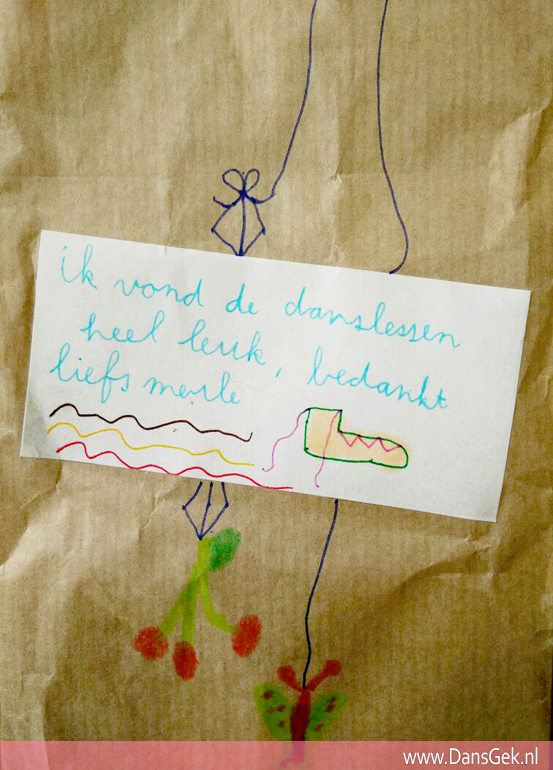 ik vond de danslessen
heel leuk, bedankt
liefs merle
www.DansGek.nl